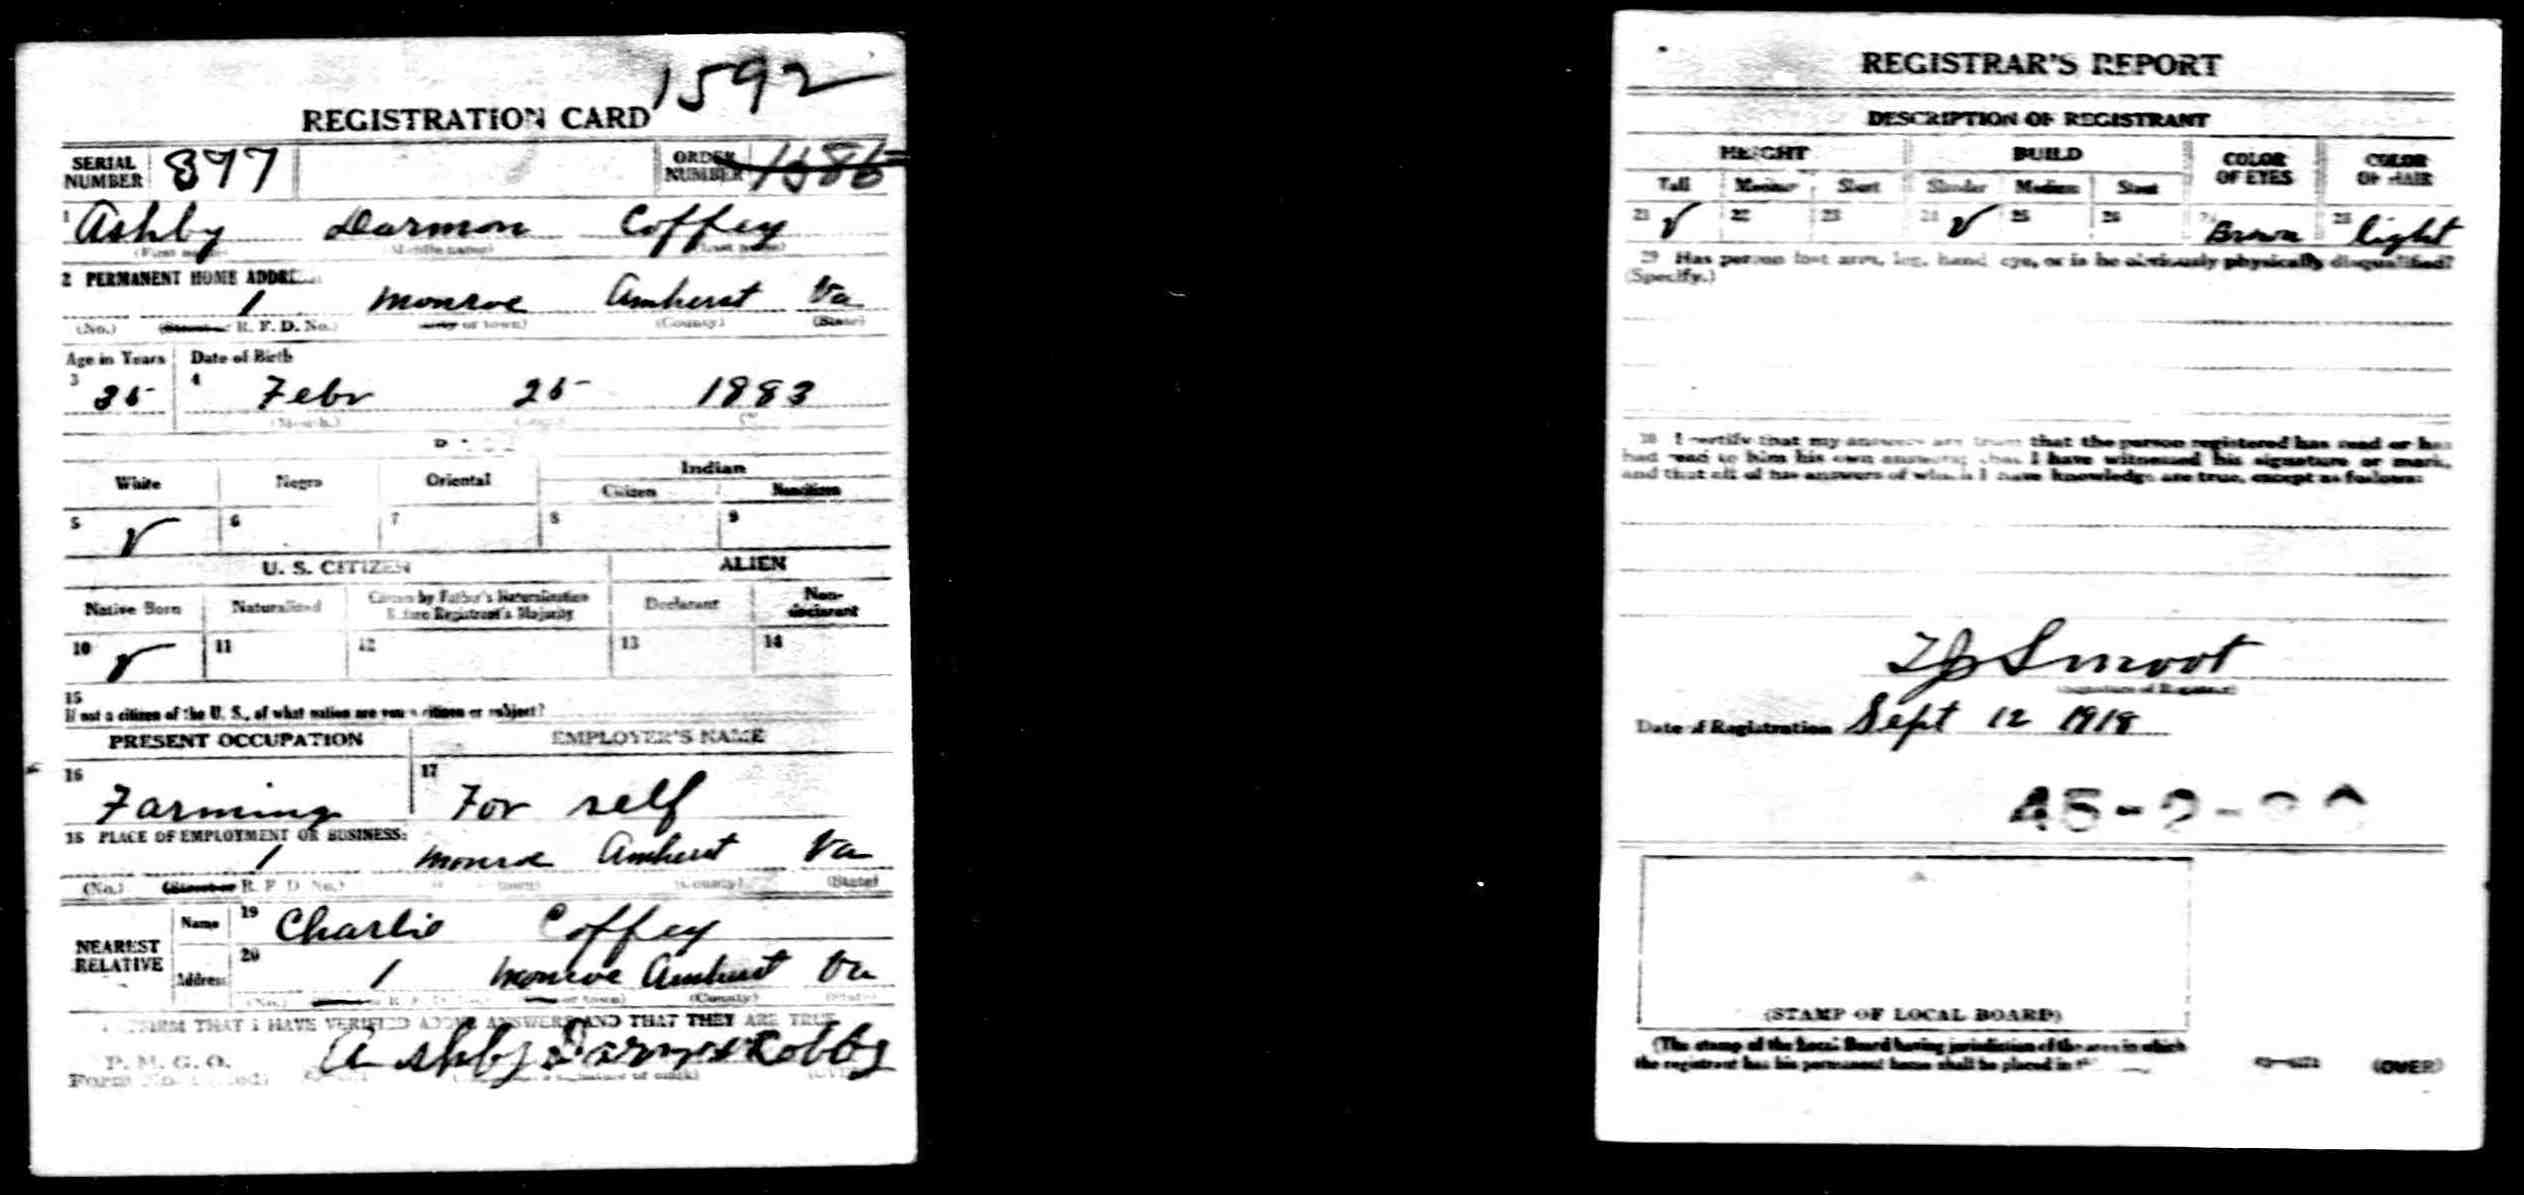 1592
REGISTRATION CARD
SERIAL NUMBER 877 ORDER NUMBER 1586
1 Ashby Darmon Coffey
(First name) (Middle name) (Last name)
2 PERMANENT HOME ADDRESS:
1 Monroe Amherst Va
(No.) (Street or R. F. D. No.) (City or town) (County) (State)
Age in Years Date of Birth
3 35 4 Febr 25 1883
(Month.)
White Negro Oriental Indian
Citizen Noncitizen
5 V 6 7 8 9
U. S. CITIZEN ALIEN
Native Born Naturalized Citizen by Father's Naturalization Before Registrant's Majority Declarant Non-declarant
10 V 11 12 13 14
15
If not a citizen of the U. S., of what nation are you a citizen or subject?
PRESENT OCCUPATION EMPLOYER'S NAME
16 Farming 17 For self
18 PLACE OF EMPLOYMENT OR BUSINESS:
1 Monroe Amherst Va
(No.) (Street or R. F. D. No.) (County) (State)
NEAREST RELATIVE Name 19 Charlie Coffey
Address 20 1 Monroe Amherst Va
(No.) (County) (State)
I AFFIRM THAT I HAVE VERIFIED ABOVE ANSWERS AND THAT THEY ARE TRUE
P. M. G. O.
Form No.
Ashby Darmon
REGISTRAR'S REPORT
DESCRIPTION OF REGISTRANT
HEIGHT BUILD COLOR OF EYES COLOR OF HAIR
Tall Medium Short Slender Medium Stout
21 V 22 23 24 V 25 26 27 Brown 28 light
29 Has person lost arm, leg, hand, eye, or is he obviously physically disqualified?
(Specify.)
30 I certify that my answers are true; that the person registered has read or has
had read to him his own answers; that I have witnessed his signature or mark,
and that all of his answers of which I have knowledge are true, except as follows:
Smoot
(Signature of Registrar)
Date of Registration Sept 12 1918
45-2-
(STAMP OF LOCAL BOARD)
(The stamp of the Local Board having jurisdiction of the area in which
the registrant has his permanent home shall be placed in
(OVER)